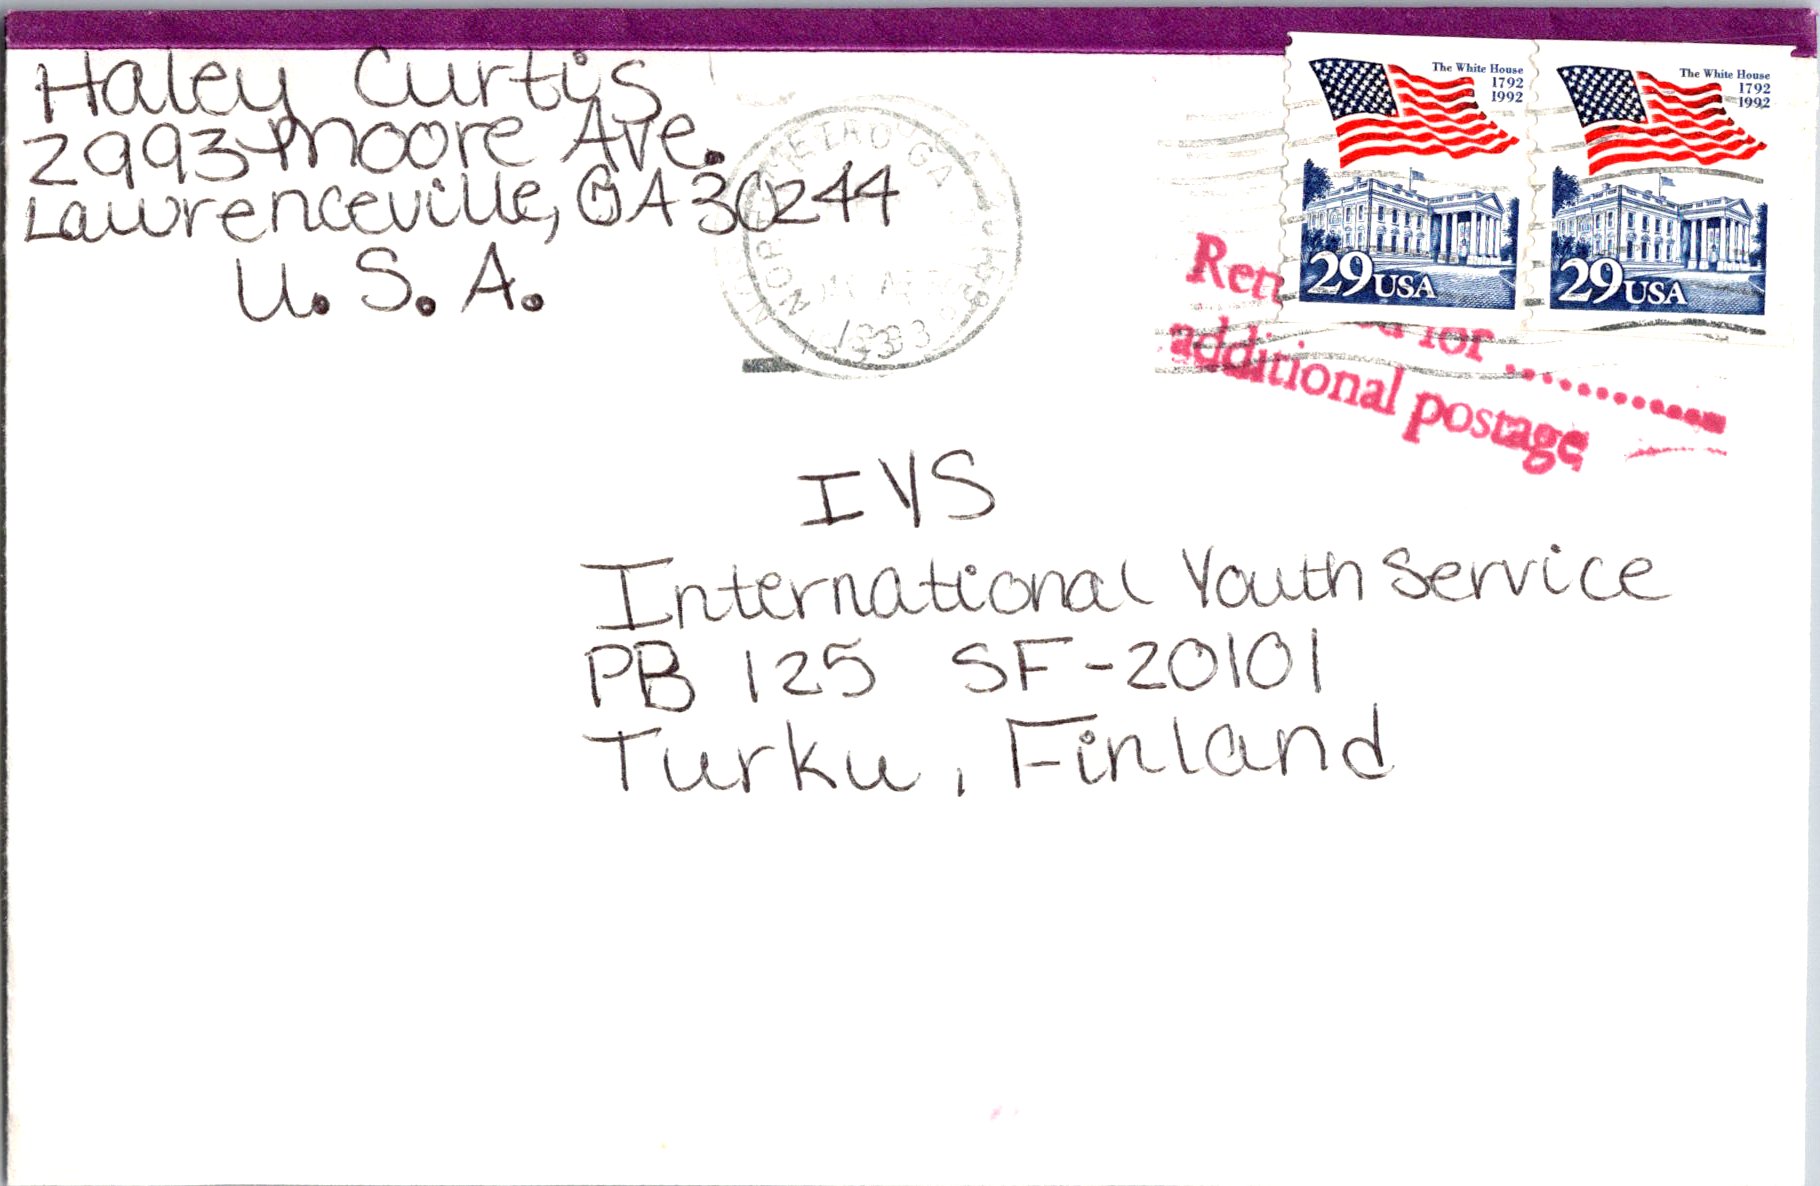 Haley Curtis
2993 Moore Ave.
Lawrenceville, GA 30244
U.S.A.
METRO GA
1993
The White House
1792
1992
29 USA
The White House
1792
1992
29 USA
for ............
additional postage
IYS
International Youth Service
PB 125 SF-20101
Turku, Finland